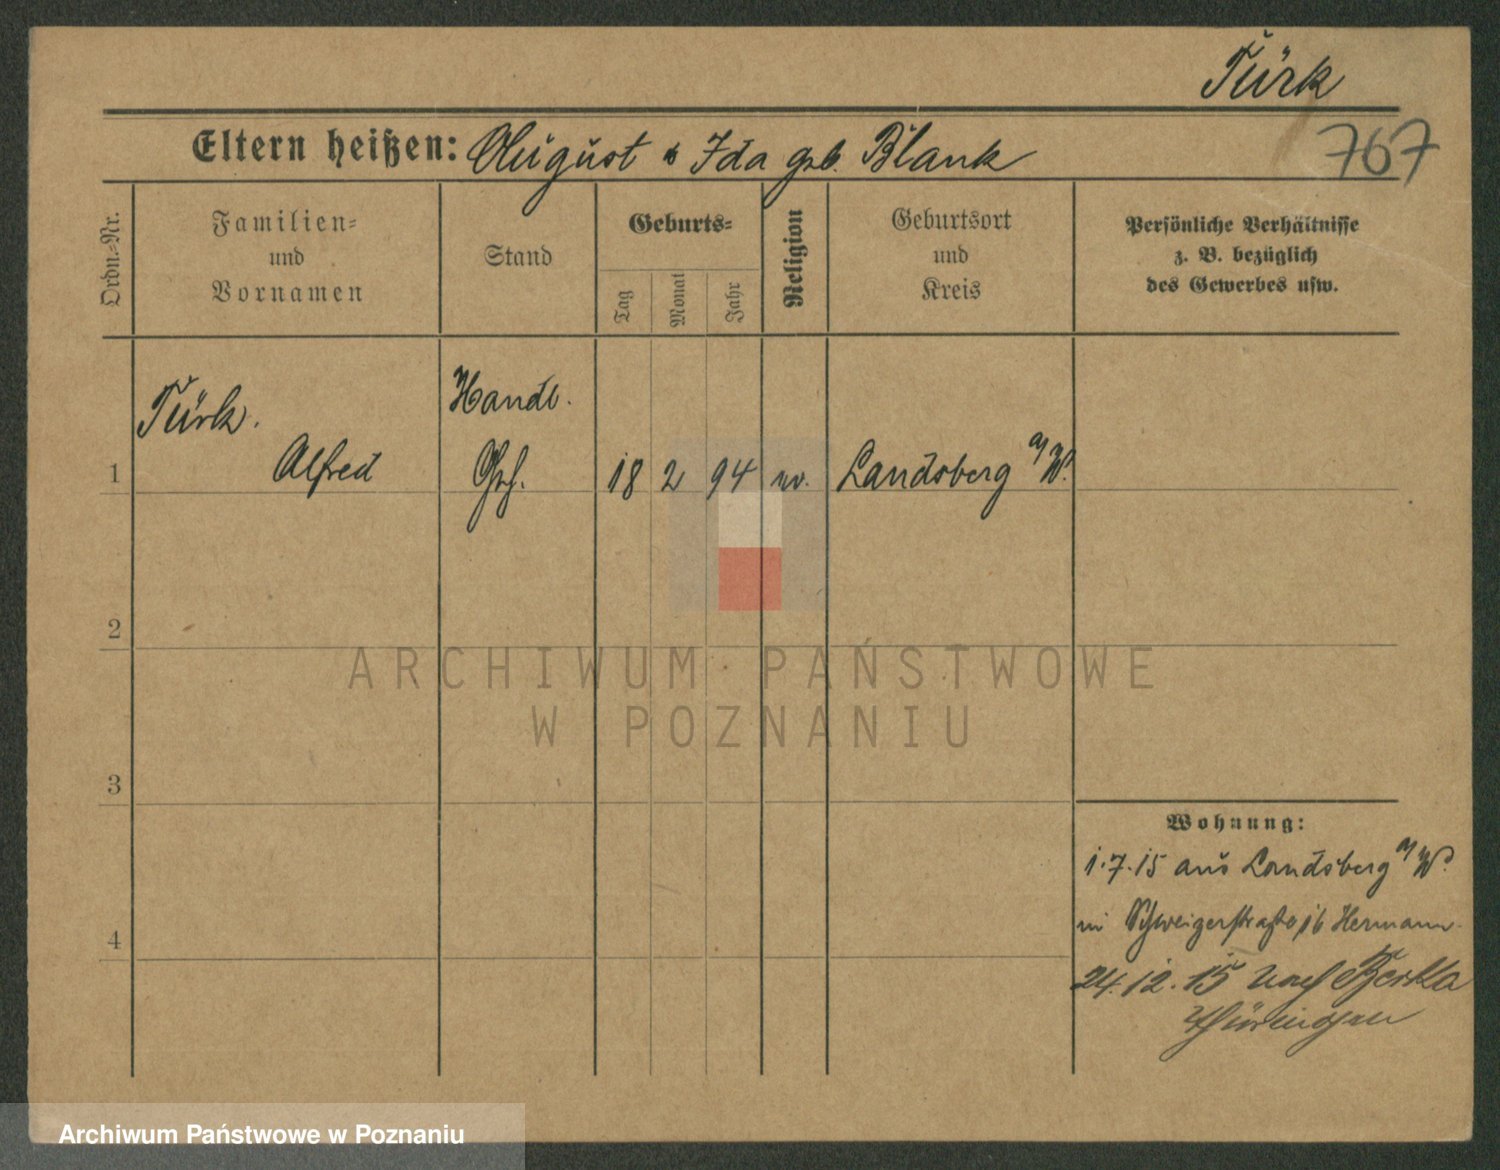 Türk
Eltern heißen: August & Ida geb. Blank
767
Ordn.-Nr.
Familien-
und
Vornamen
Stand
Geburts-
Tag
Monat
Jahr
Religion
Geburtsort
und
Kreis
Persönliche Verhältnisse
z. B. bezüglich
des Gewerbes usw.
Türk.
Handl.
1
Alfred
Geh.
18
2
94
ev.
Landsberg a/W.
2
ARCHIWUM PAŃSTWOWE
W POZNANIU
3
Wohnung:
1.7.15 aus Landsberg a/W.
Hermann
4
24.12.15 nach Berka
Thüringen
Archiwum Państwowe w Poznaniu